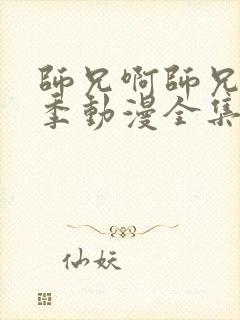 師兄啊師兄
季動漫全集
仙妖